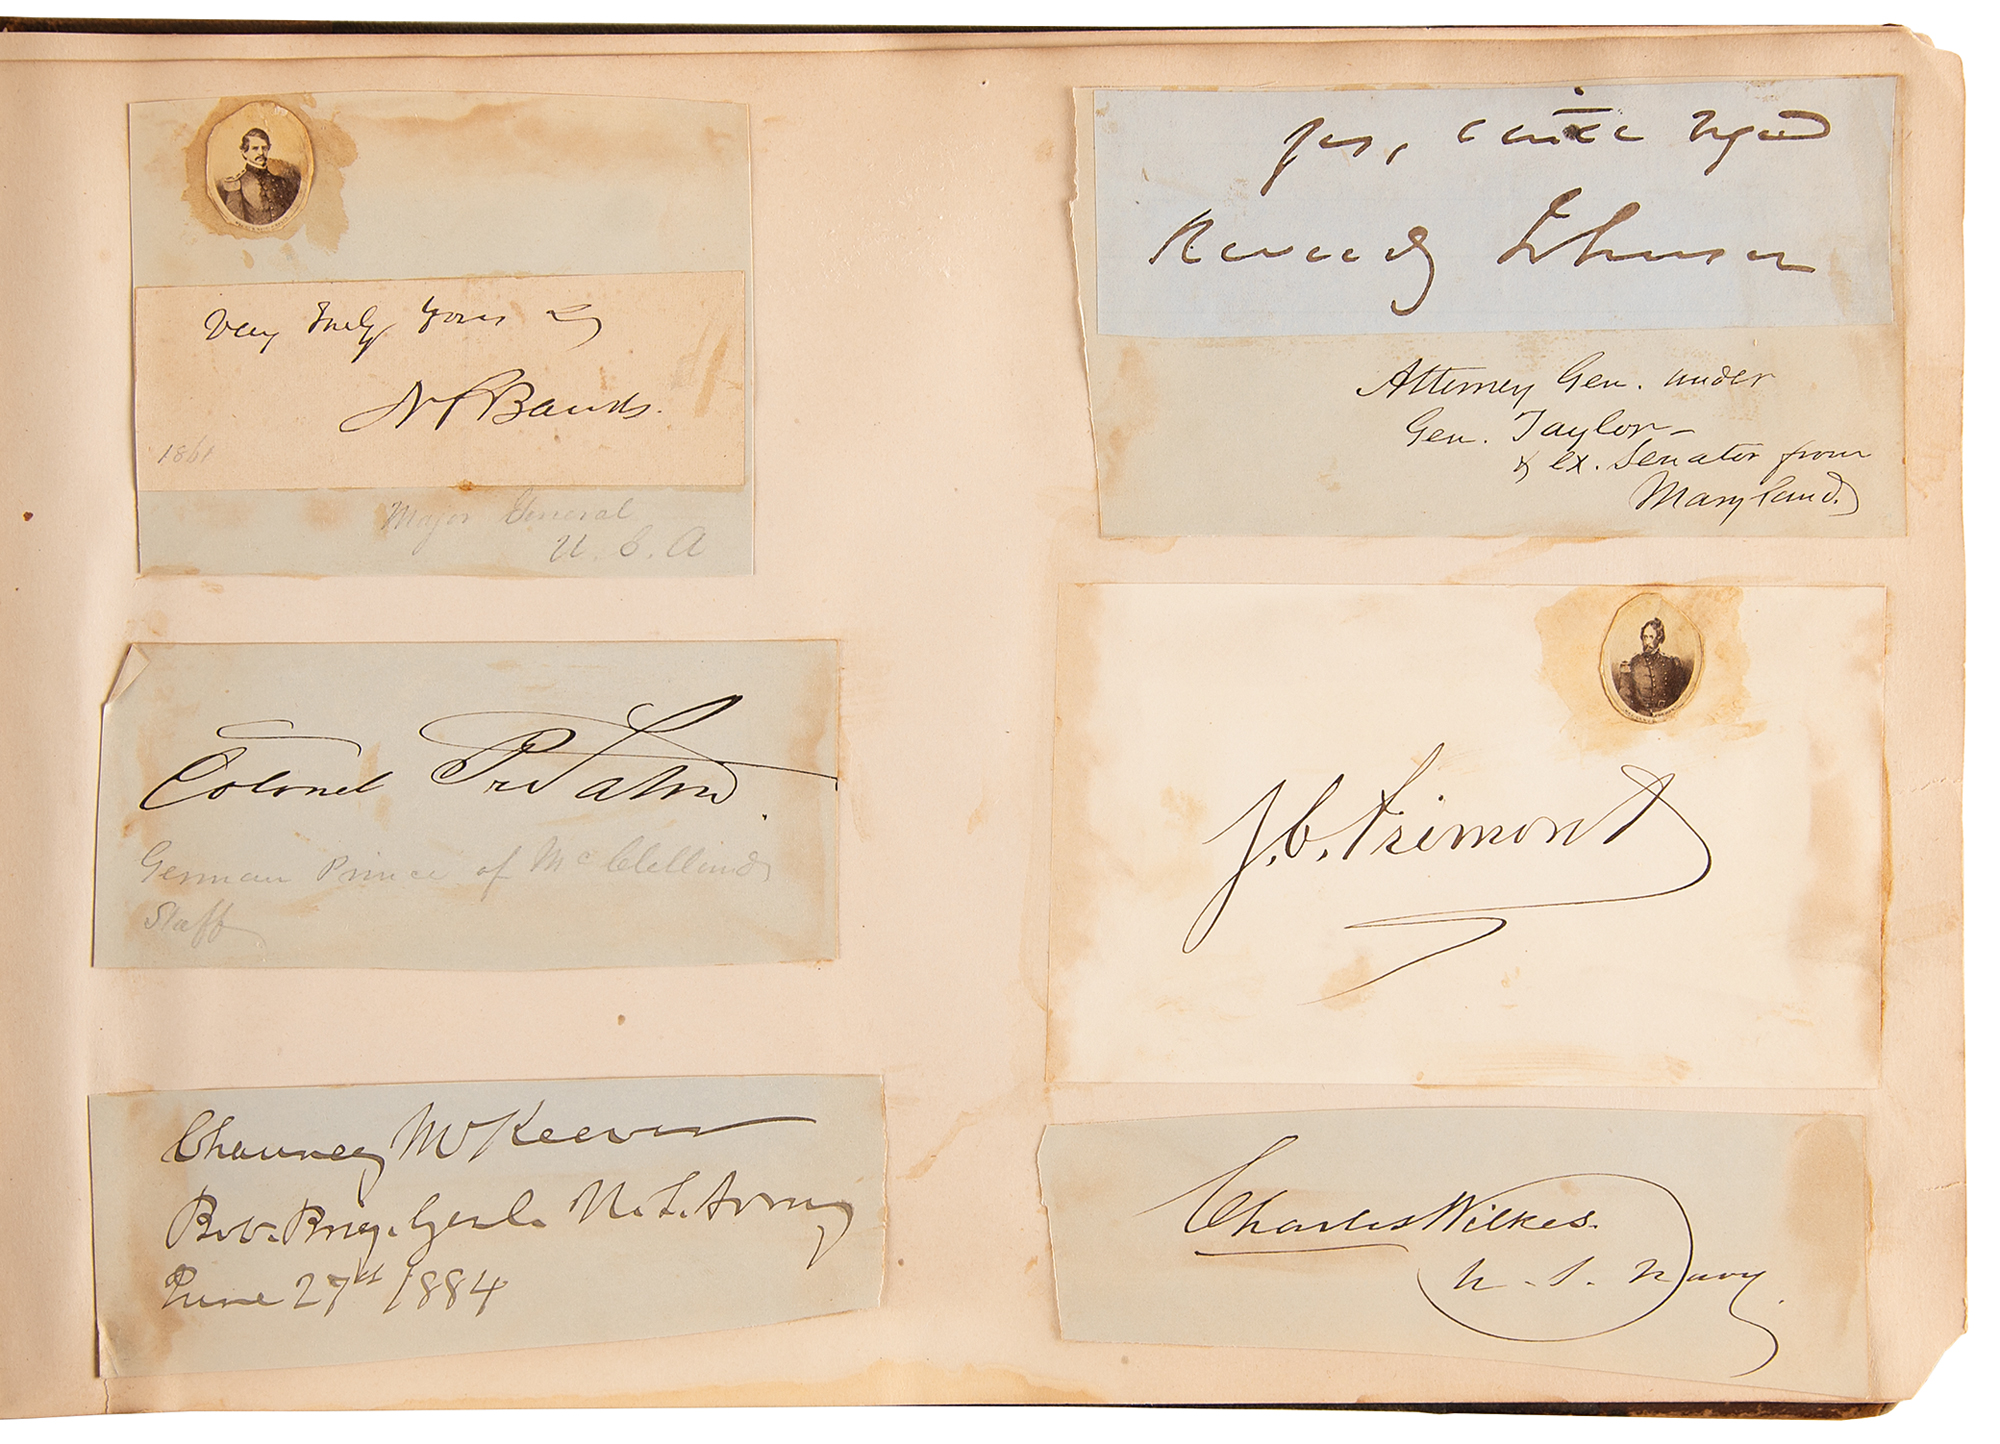 Very truly yours
N P Banks.
1861
Major General
U. S. A
Colonel Pr Salm.
German Prince of McClellands
Staff
Chauncey McKeever
Bvt. Brig. Genl. U. S. Army
June 27th 1884
Reverdy Johnson
Attorney Gen. under
Gen. Taylor—
& ex. Senator from
Maryland.
J. C. Frémont
Charles Wilkes.
U. S. Navy